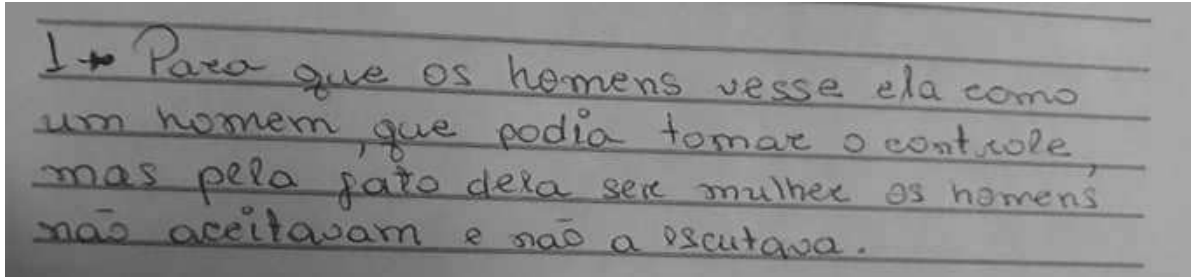 1- Para que os homens vesse ela como
um homem, que podia tomar o controle,
mas pela fato dela ser mulher os homens
não aceitavam e não a escutava.